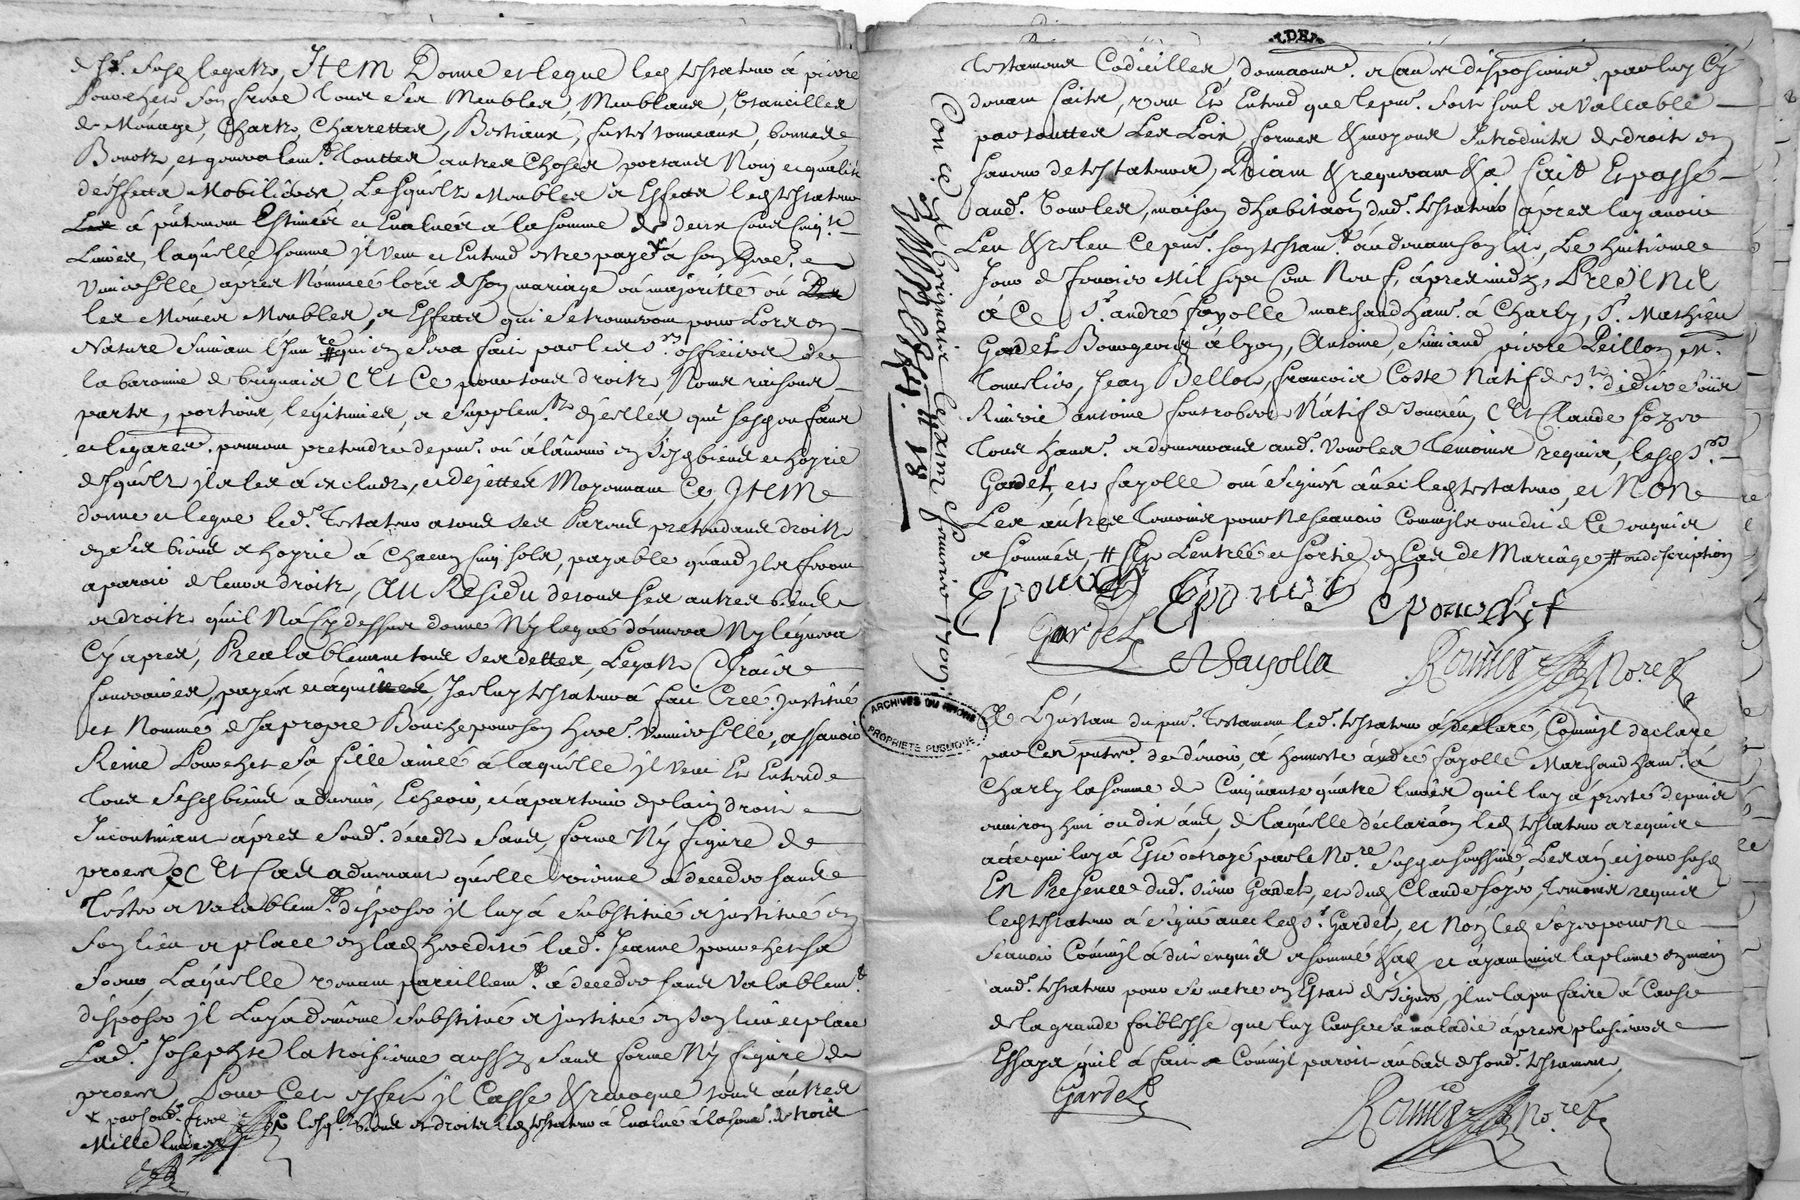 Item Donne et legue led. testateur á pierre
Pouchet son frere tous ses Meubles, Meublans, Utancilles
de Menage, Chars, Charrettes, Bestiaux, futs tonneaux, bennes
et generalem.t touttes autres choses portans Nom et qualité
d'effects Mobiliaires, Lesquels Meubles et Effects led. testateur
á p̄ntemen Estimés et Evalués á la somme de deux Cens Cinq.te
Livres, laquelle somme il veut et Entend estre payé á son here.
universelle apres Nommée lors de son mariage ou majoritté ou
les Mémes Meubles, et Effects qui se trouveron pour Lors en
Nature suivan l'Inv.re qui en sera fait par les S.rs officiers de
la baronnie de brignais Et Ce pour tous droits, Noms raisons
parts, portions, legitimes, et supplem.ts d'icelles, que
pouroien pretendre de p̄nt. ou á l'avenir en sesd. biens et hoyrie
desquels il les á exclus, et dejettés Moyennan Ce, Item
donne et legue led. Testateur a tous ses Parens pretendans droits
en ses biens et hoyrie á Chacun Cinq sols, payable quand ils feront
aparoir de leurs droits, Au Residu de tous ses autres biens
et droits quil Na Cy dessus donné Ny legué donnera Ny léguera
Cy apres, Prealablement tous ses dettes, Legats frais
funeraires, payés et aquités, Icelluy testateur á fait Créé, Institué
et Nommé de sa propre Bouche pour son here. universelle, assavoir
Reine Pouchet sa fille ainée á laquelle il veut Et Entend
tous sesd. biens advenir, Echeoir, et apartenir de plain droit
Incontinant apres sond. décedz sans forme Ny figure de
proces Et Cas advenant quelle vienne á deceder sans
Tester et valablem.t disposer il luy á substitué et institué en
son lieu et place en lad. heredité lad. Jeanne pouchet sa
soeur, Laquelle venant pareillem.t á deceder sans Valablem.t
disposer il Luy a de méme substitué et institué en son lieu et place
Lad. Josephte la troisieme aussy sans forme Ny figure de
proces, Pour Cet effet il Casse & revoque tous autres
par sond. frere lesq.ls biens et droits led. testateur á Evalué á la som̄e de trois
Mille livres
Testamens Codicilles, donnaons et autres dispositions par luy Cy
devant faits, veut Et Entend que le p̄nt. soit seul et vallable
par touttes Les Loix, formes & moyens Introduits de droit en
faveur de testateurs, Priant & requerant & a fait Et passé
aud. Vourles, maison d'habitaon dud. testateur ápres luy avoir
Leu & releu Ce p̄nt. son testam.t au devant son lit, Le huitieme
Jour de Janvier Mil sept Cen Neuf, ápres midy, Presens
á Ce S.r andré fayolle marchand han.t á Charly, S.r Mathieu
Gardet Bourgeois á lyon, Antoine Simiand, pierre Peillon m.e
tonnelier, Jean Bellot, francois Coste Natif de S.t didier soubs
Riverie, antoine fontrobert Natif de soucieu, Et Claude sozer
tous han.s et demeurans aud. Vourles temoins requis, lesd. S.rs
Gardet, et fayolle ont signés avec led. testateur, et Non
Les autres temoins pour Ne scavoir Comm'ils on dit de Ce enquis
et sommés, # L'entrée et sortie en Cas de Mariage # ou discription
Epouchet Epouchet Epouchet
Gardet
A Fayolle
Rouier No.re
Et L'Instant du p̄nt. Testament led. testateur á declaré, Comm'il declare
par Ces p̄ntes. de devoir, á honneste andré fayolle Marchand han.t á
Charly la somme de Cinquante quatre livres quil luy á presté depuis
environ huit ou dix ans, de laquelle déclaraon led. testateur a requis
acte qui luy á Esté octroyé par le No.re susd. soussigné, Les an et jour susd.
En Presence dud. sieur Gardet, et dud. Claude sozer, temoins requis
led. testateur á signé avec led. S.r Gardet, et Non led. sozer pour Ne
scavoir Comm'il á dit enquis et sommé & et ayant mis la plume en main
aud. testateur pour se metre en Estat de signer, il ne la pu faire á Cause
de la grande foiblesse que luy Cause sa maladie ápres plusieurs
Essays quil á fait Comm'il paroit au bas de sond. testament,
Gardet
Rouier No.re
Con.le á brignais le 13me Janvier 1709
ARCHIVES DU RHONE
PROPRIETE PUBLIQUE